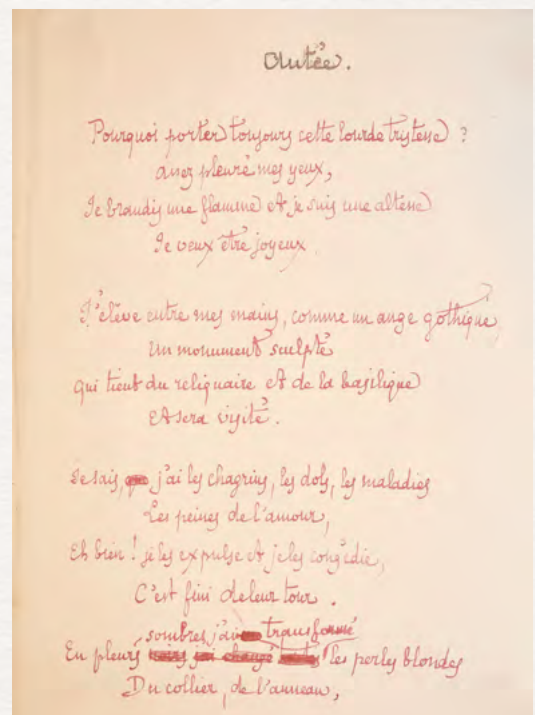 Antée.
Pourquoi porter toujours cette lourde tristesse ?
assez pleuré mes yeux,
Je brandis une flamme et je suis une altesse
Je veux être joyeux
J'élève entre mes mains, comme un ange gothique,
Un monument sculpté
qui tient du reliquaire et de la basilique
Et sera visité.
Je sais, j'ai les chagrins, les dols, les maladies
Les peines de l'amour,
Eh bien ! je les expulse et je les congédie,
C'est fini de leur tour.
sombres j'ai transformé
En pleurs noirs j'ai changé les perles blondes
Du collier, de l'anneau,